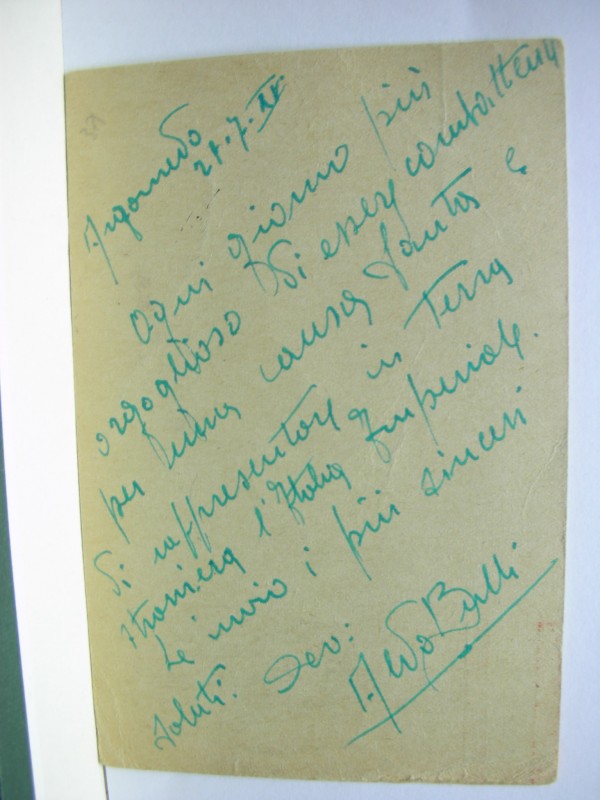 Argomedo
21.7.XV
Ogni giorno più
orgoglioso di esser combattente
per una causa santa e
di rappresentare in Terra
straniera l'Italia Imperiale.
Le invio i più sinceri
saluti. Dev:
Aldo Bulli